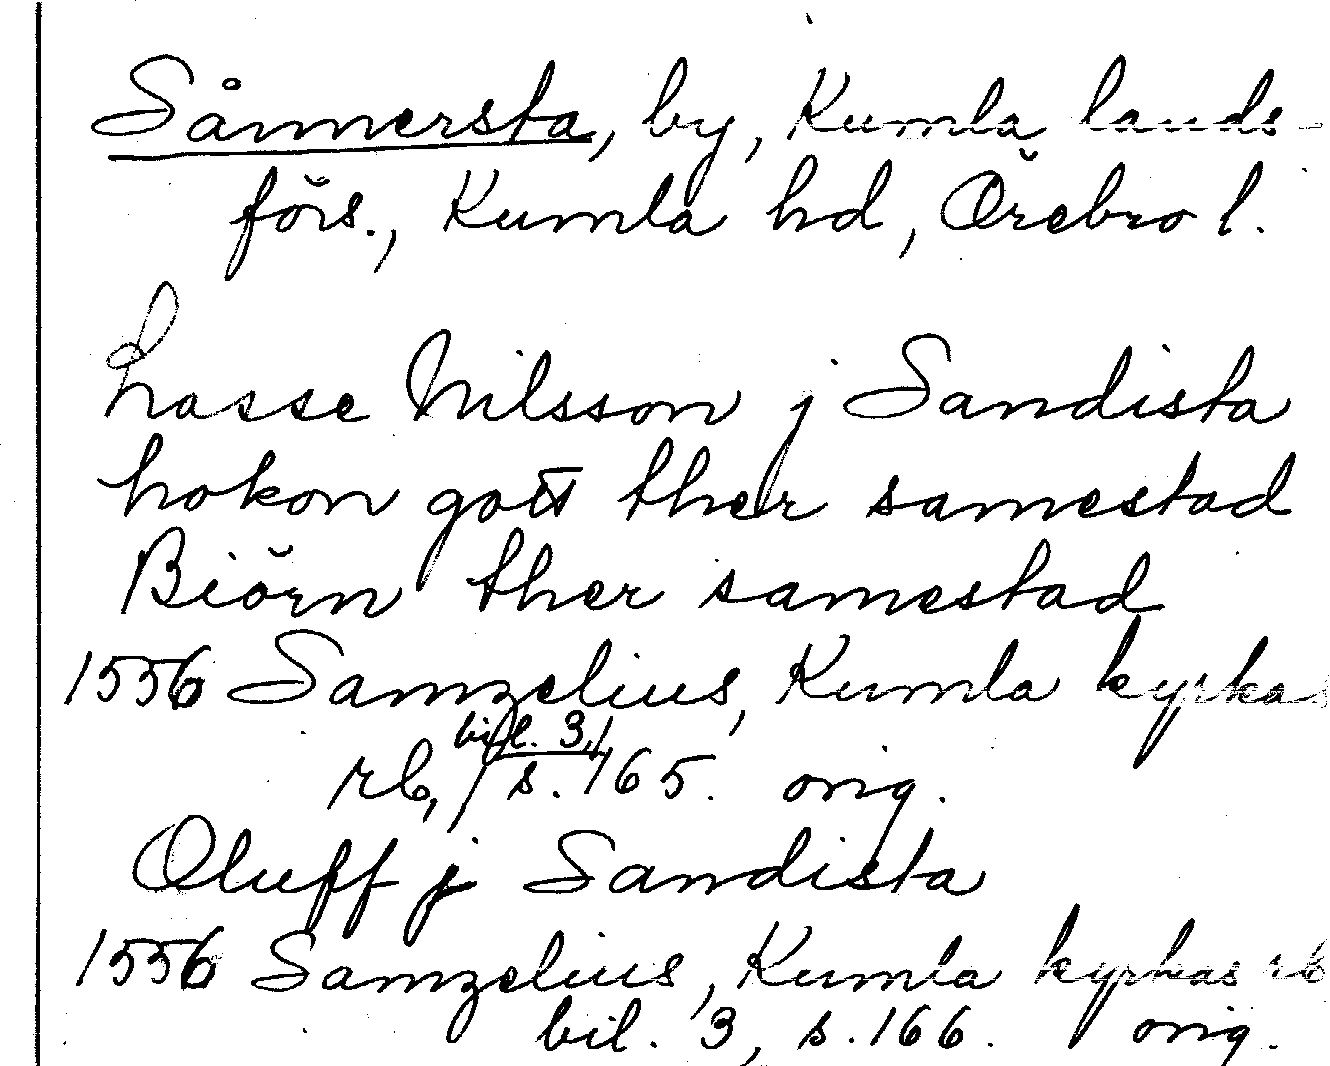 Sånnersta, by, Kumla lands-
förs., Kumla hd, Örebro l.
Lasse Nilsson j Sandista
hokon gott ther samestad
Biörn ther samestad
1556 Samzelius, Kumla kyrkas
rb, bil. 3, s. 165. orig.
Oluff j Sandista
1556 Samzelius, Kumla kyrkas rb
bil. 3, s. 166. orig.